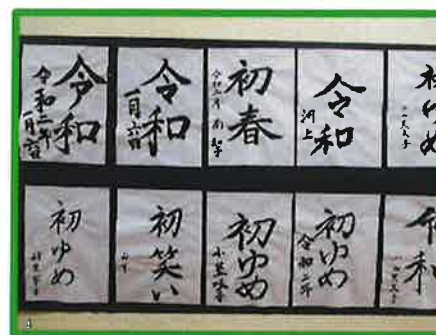 令和
令和二年
一月六日
令和
一月六日
初春
令和二年
令和
河上
初ゆめ
初ゆめ
初笑い
初ゆめ
初ゆめ
令和二年
令和